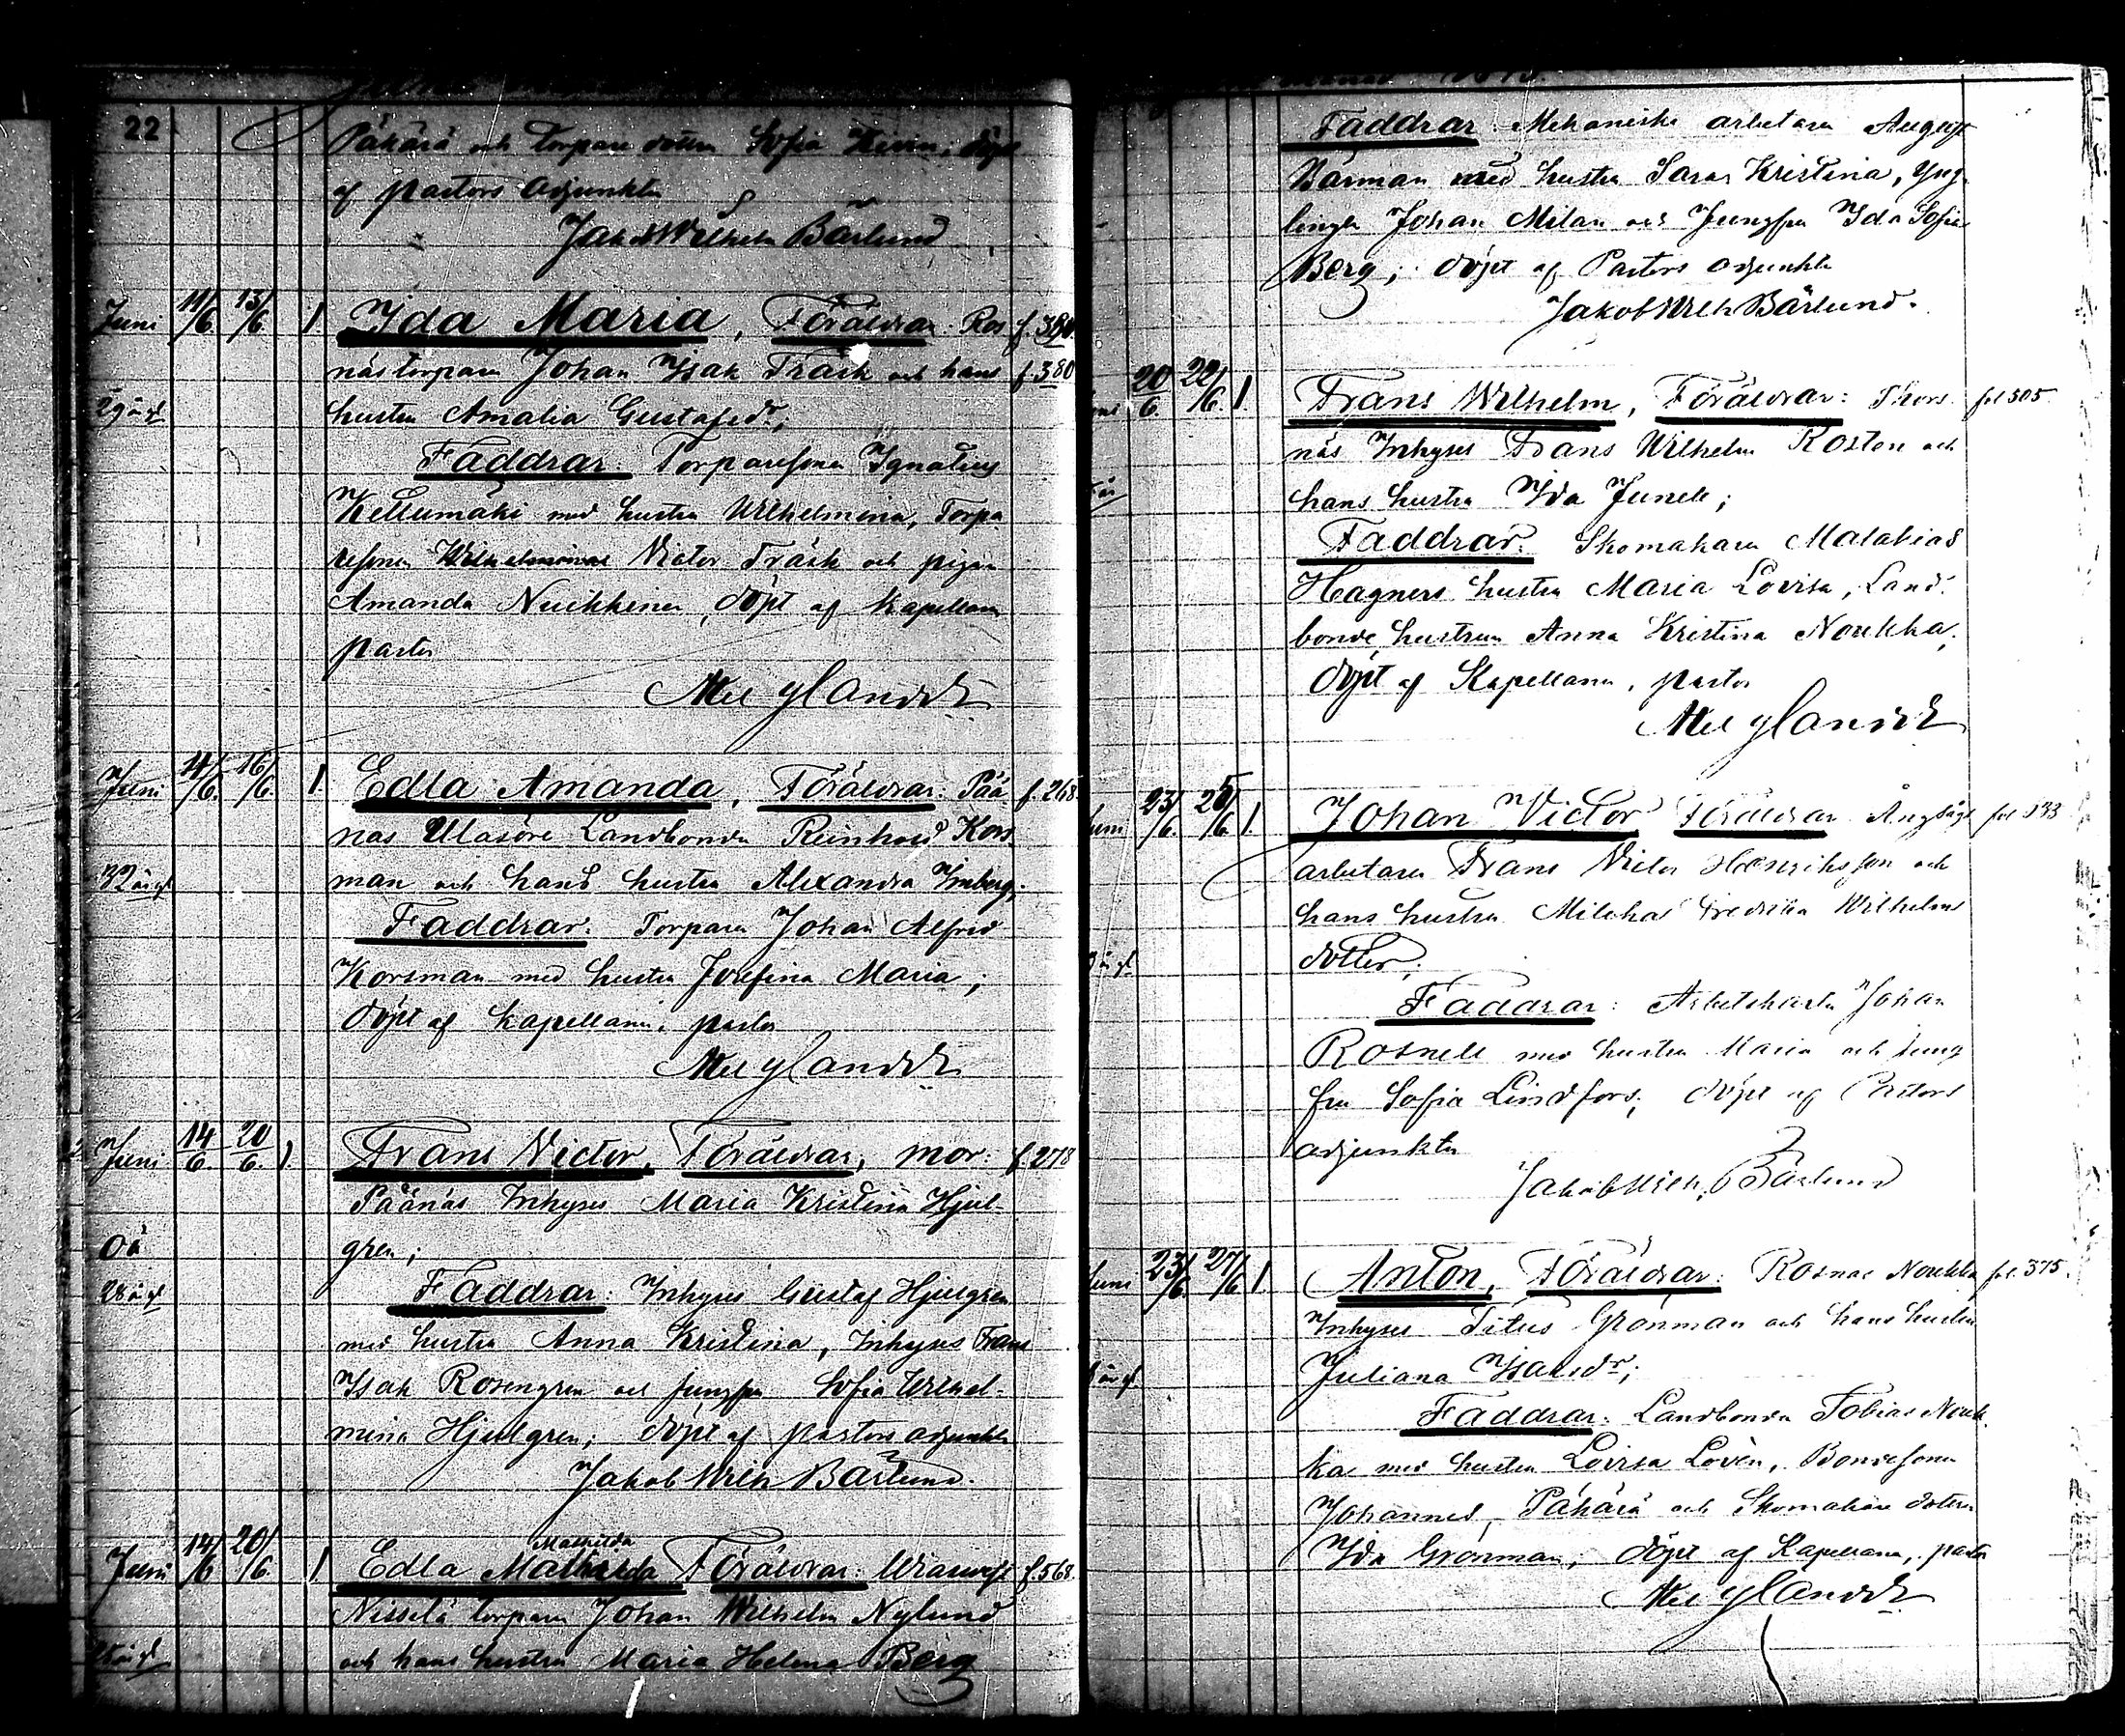 22
Påkärä och torpare dottern Sofia döpt
af pastors adjunkten
Jakob Wilhelm Bärlund
Juni 11/6 13/6 1 Ida Maria, Föräldrar: Ros f. 380
näs torparen Johan Isak Träsk och hans f. 380
29 år gl hustru Amalia Gustafsdr;
Faddrar: Torparesonen Ignatius
Kellumäki med hustru Wilhelmina, Torpa
resonen Wilhelmina Victor Träsk och pigan
Amanda Nuikkinen, döpt af Kapellanen
pastor
Mel Ylander
Juni 14/6. 16/6. 1. Edla Amanda, Föräldrar: Pää f. 268
näs Ulasöre Landbonden Reinhold Kors
32 år gl man och hans hustru Alexandra Imberg;
Faddrar: Torparen Johan Alfred
Korsman med hustru Josefina Maria;
döpt af Kapellanen, pastor
Mel Ylander
Juni 14/6. 20/6. 1. Frans Victor, Föräldrar, mor: f. 278
Päänäs Inhyses Maria Kristina Hjul-
Oä gren;
28 år gl Faddrar: Inhyses Gustaf Hjulgren
med hustru Anna Kristina, Inhyses Frans
Isak Rosengren och jungfru Sofia Wilhel-
mina Hjulgren; döpt af pastors adjunkten
Jakob Wilh Bärlund.
Mathilda
Juni 14/6 20/6. 1 Edla Mathilda Föräldrar: f. 568.
Nisselä torparen Johan Wilhelm Nylund
och hans hustru Maria Helena Berg
Faddrar: Mekaniske arbetaren August
Bärman med hustru Sara Kristina, Yng-
lingen Johan Milan och Jungfru Ida Sofia
Berg; döpt af Pastors adjunkten
Jakob Wilh Bärlund.
20/6. 22/6. 1. Frans Wilhelm, Föräldrar: Thors fol 305
näs Inhyses Frans Wilhelm Rosten och
hans hustru Ida Junell;
Faddrar: Skomakaren Malakias
Hagners hustru Maria Lovisa, Land-
bonde hustrun Anna Kristina Noukka,
döpt af Kapellanen, pastor
Mel Ylander
23/6. 25/6. 1. Johan Victor Föräldrar Ångsågs fol 133
arbetaren Frans Victor Henriksson och
hans hustru Milcha Fredrika Wilhelms
dotter;
Faddrar: Arbetskarlen Johan
Rosnell med hustru Maria och Jung
fru Sofia Lindfors; döpt af Pastors
adjunkten
Jakob Wilh. Bärlund
Juni 23/6. 27/6 1 Anton, Föräldrar: Rosnäs Noukka fol. 375.
Inhyses Titus Grönman och hans hustru
Juliana Isaksdr;
Faddrar: Landbonden Tobias Nouk
ka med hustru Lovisa Lovèn, Bondesonen
Johannes Påkärä och Skomakare dottern
Ida Grönman; döpt af Kapellanen, pastor
Mel Ylander